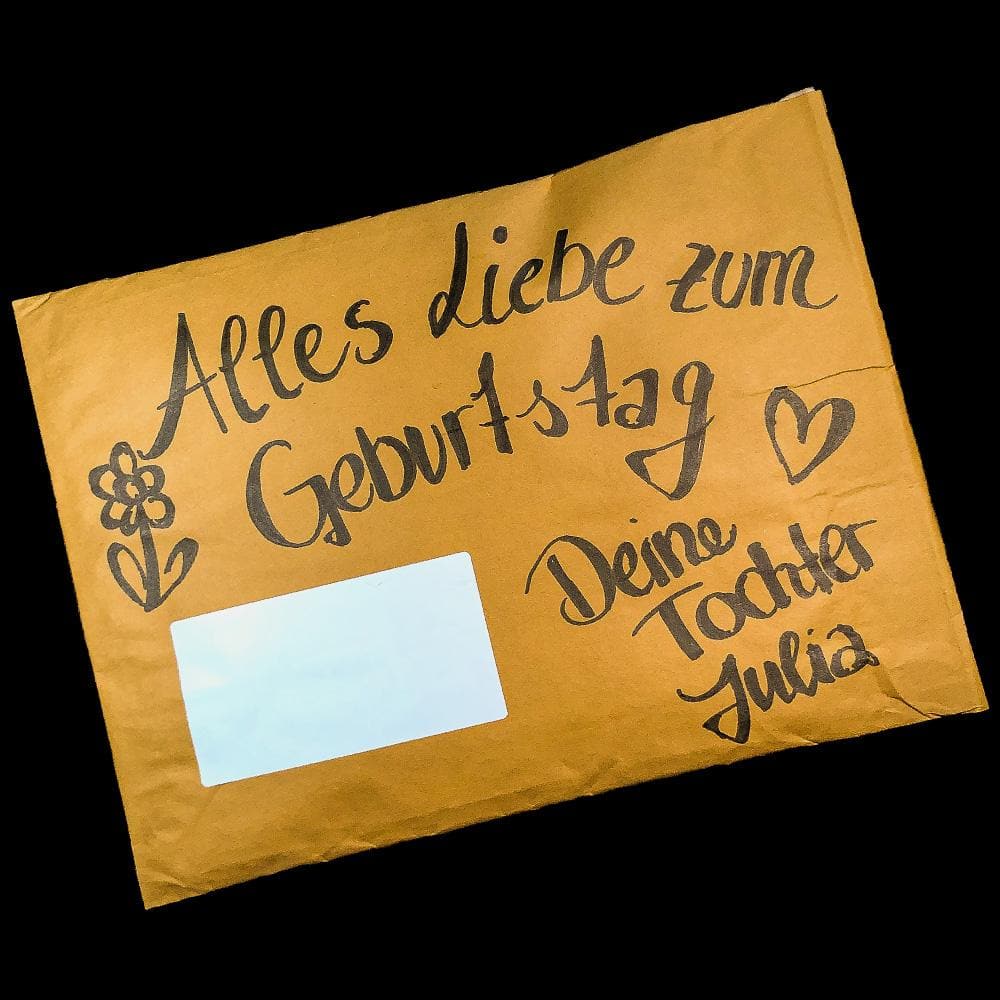 Alles Liebe zum
Geburtstag
Deine
Tochter
Julia